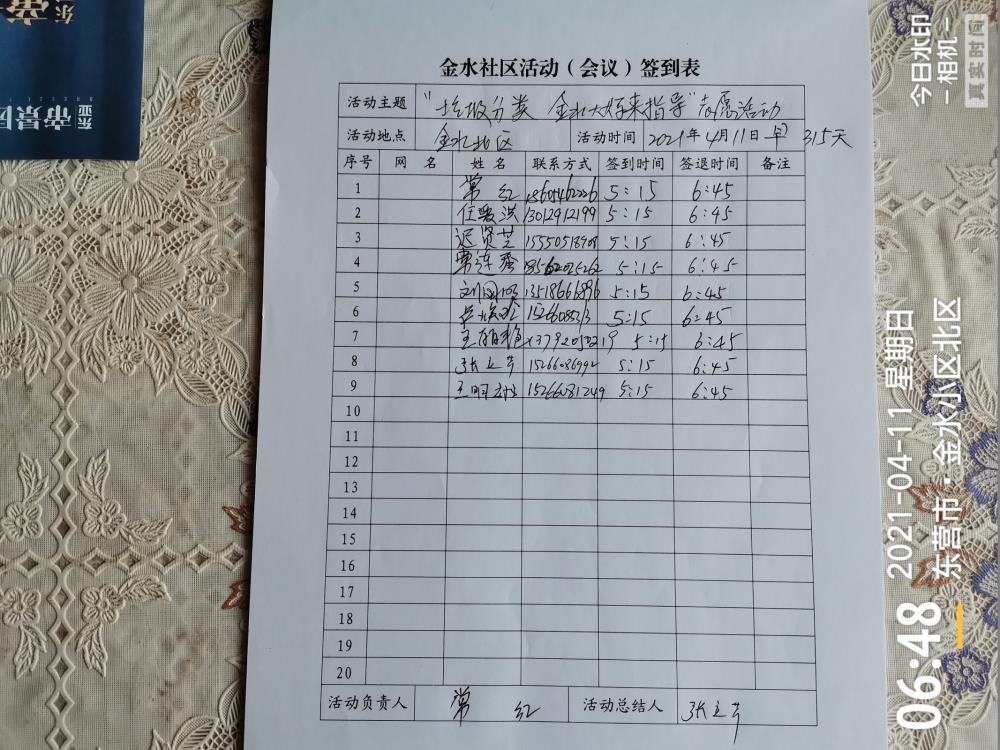 金水社区活动（会议）签到表
活动主题 "垃圾分类 金水大姐来指导"志愿活动
活动地点 金水北区 活动时间 2021年4月11日 早 315天
序号 网名 姓名 联系方式 签到时间 签退时间 备注
1 常红 5:15 6:45
2 任爱洪 13012912199 5:15 6:45
3 迟贤芝 15550518908 5:15 6:45
4 常连 5:15 6:45
5 刘国 13518666896 5:15 6:45
6 15266085313 5:15 6:45
7 王 5:15 6:45
8 张立芹 15266086992 5:15 6:45
9 王明 15266081249 5:15 6:45
10
11
12
13
14
15
16
17
18
19
20
活动负责人 常红 活动总结人 张立芹
东金 帝景
今日水印
-相机-
真实时间
06:48
2021-04-11 星期日
东营市·金水小区北区